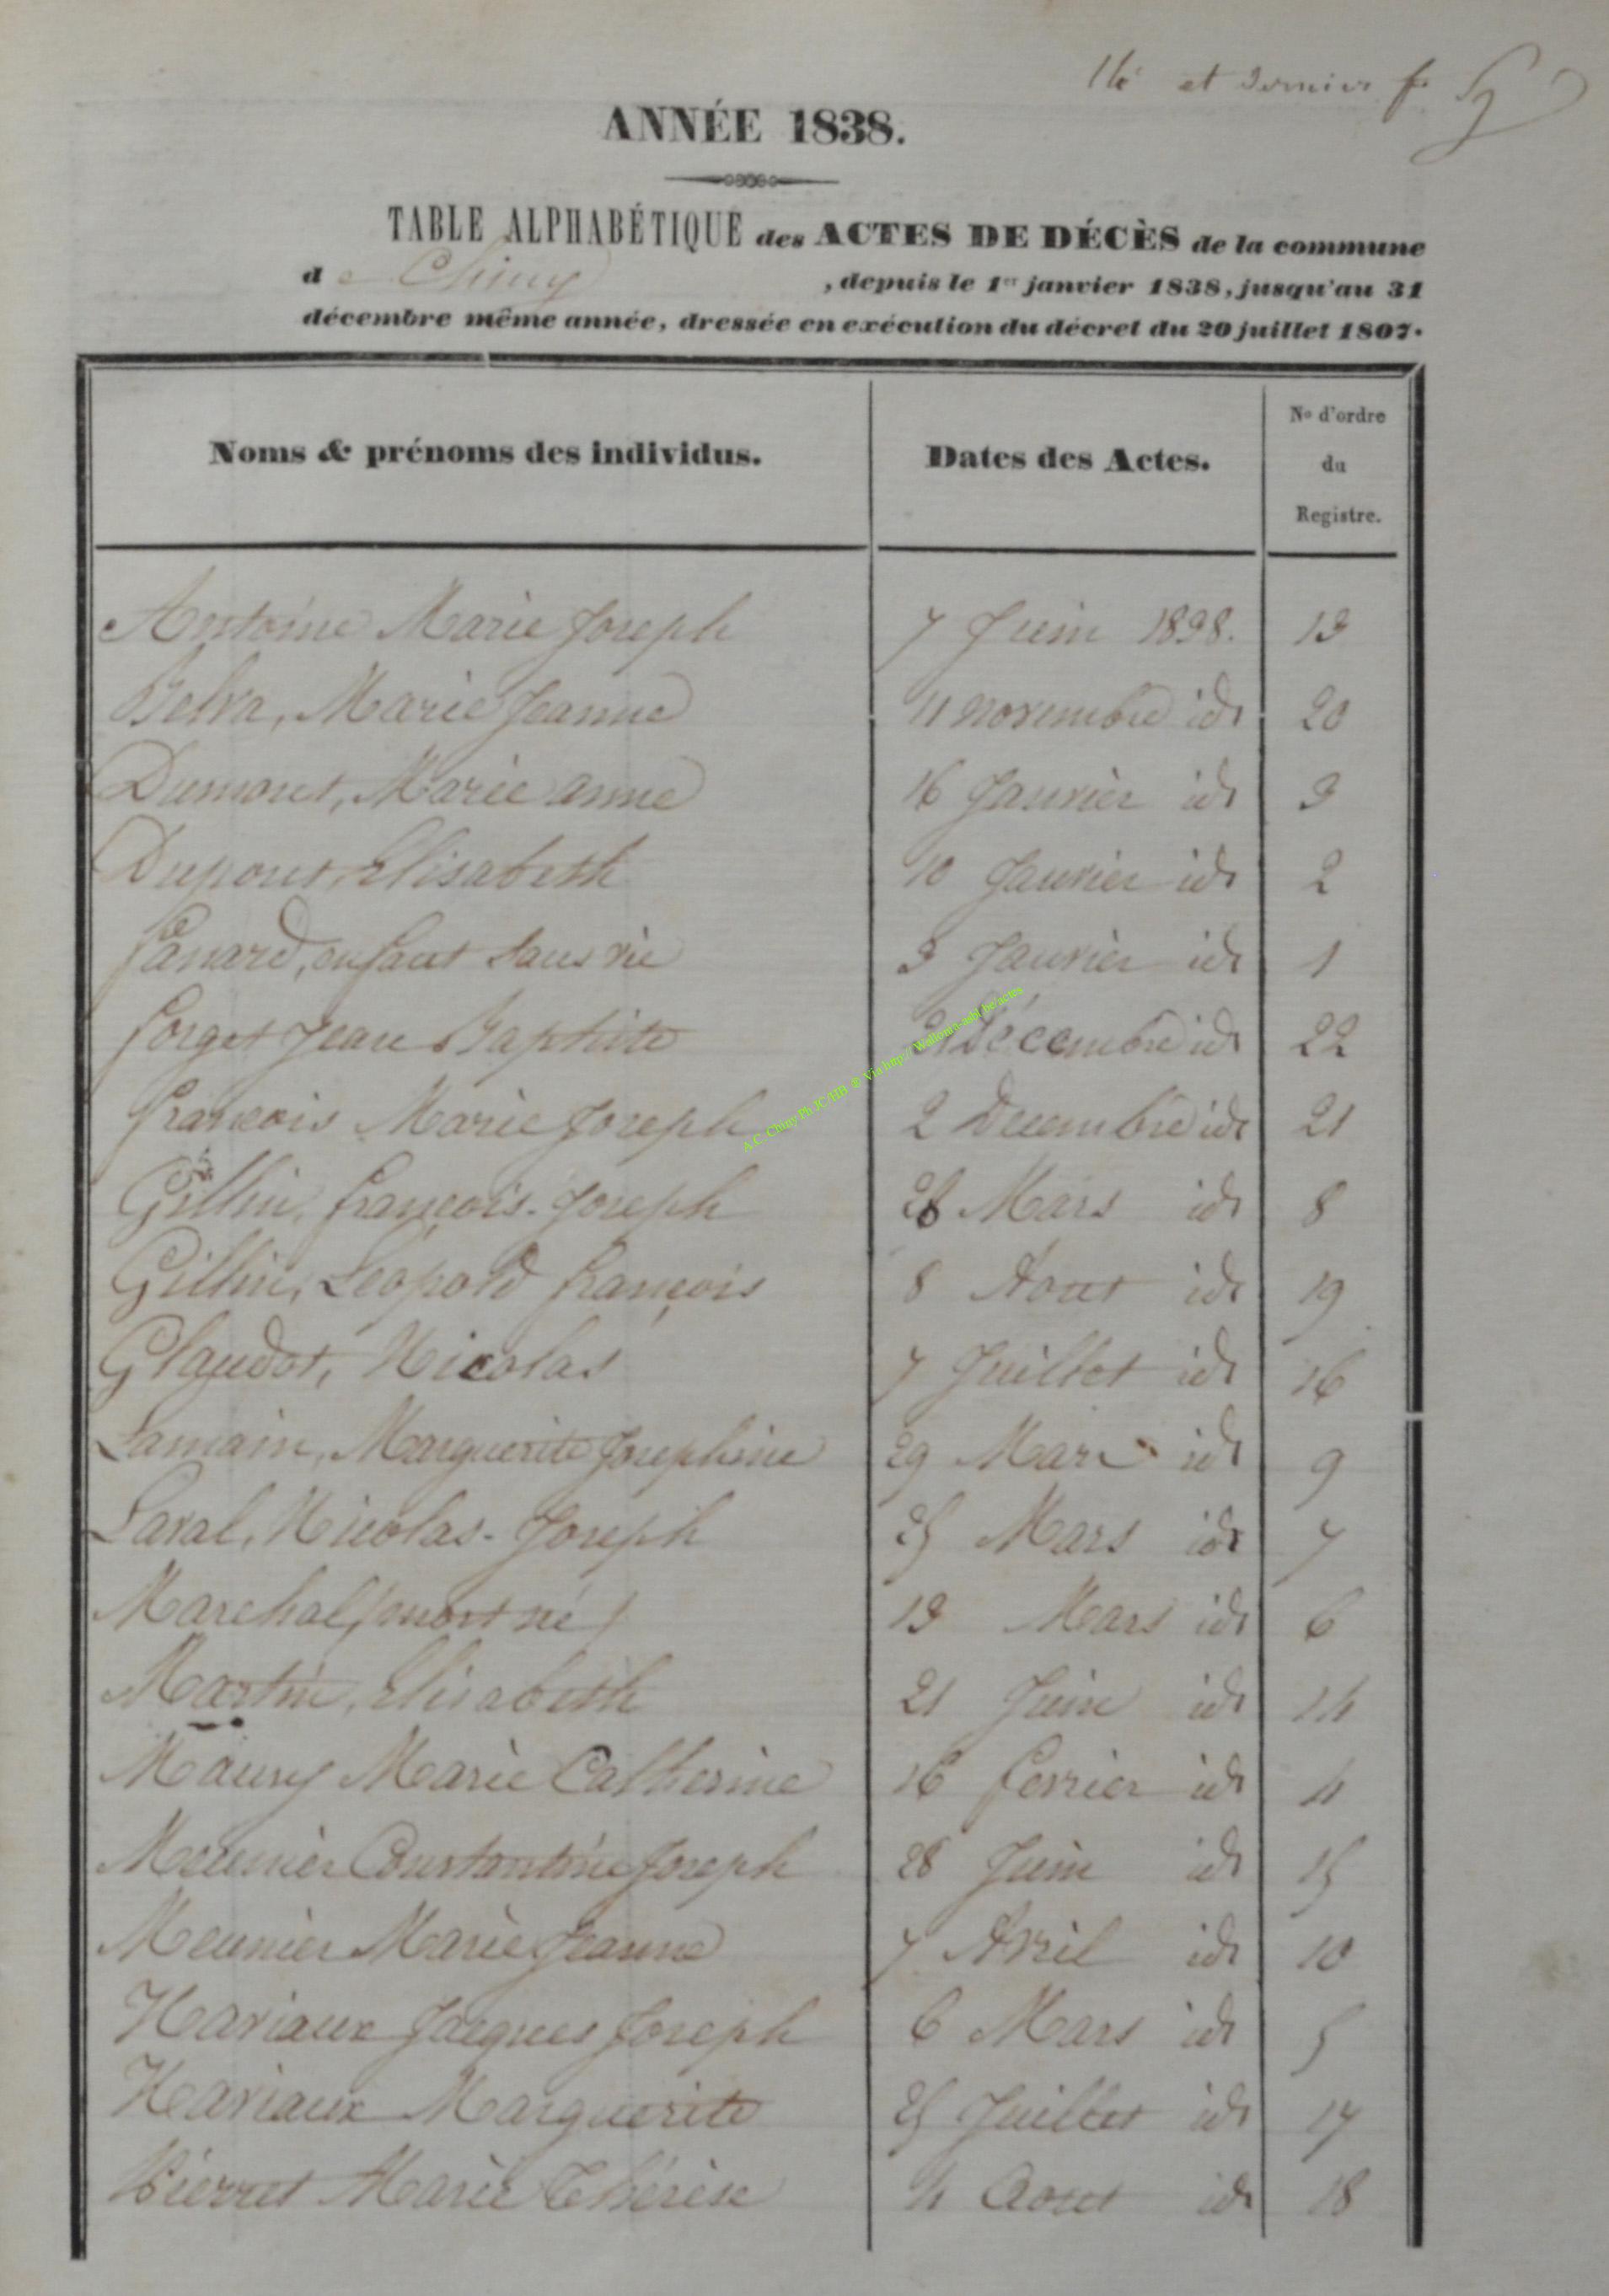 11e et dernier f.
ANNÉE 1838.
TABLE ALPHABÉTIQUE des ACTES DE DÉCÈS de la commune
d e Chiny , depuis le 1er janvier 1838, jusqu'au 31
décembre même année, dressée en exécution du décret du 20 juillet 1807.
Noms & prénoms des individus. Dates des Actes. No d'ordre du Registre.
Antoine Marie Joseph 7 Juin 1838. 13
Belva, Marie Jeanne 11 novembre id. 20
Dumont, Marie anne 16 Janvier id. 3
Dupont, Elisabeth 10 Janvier id. 2
fanard, enfant sans vie 3 Janvier id. 1
forget Jean Baptiste Décembre id. 22
françois Marie Joseph 2 Decembre id. 21
Gillin, françois-Joseph 26 Mars id. 8
Gillin, Léopold françois 8 Aout id. 19
Glaudot, Nicolas 7 Juillet id. 16
Lamain, Marguerite Josephine 29 Mars id. 9
Laval, Nicolas-Joseph 25 Mars id. 7
Marchal (mort né) 13 Mars id. 6
Martin, Elisabeth 21 Juin id. 14
Maury Marie Catherine 16 fevrier id. 4
Meunier Constantine Joseph 28 Juin id. 15
Meunier Marie Jeanne 7 Avril id. 10
Naviaux Jacques Joseph 6 Mars id. 5
Naviaux Marguerite 25 Juillet id. 17
Pierret Marie Thérèse 4 Aout id. 18
A.C. Chiny Ph JC/HB © Via http://Wallonia-asbl.be/actes